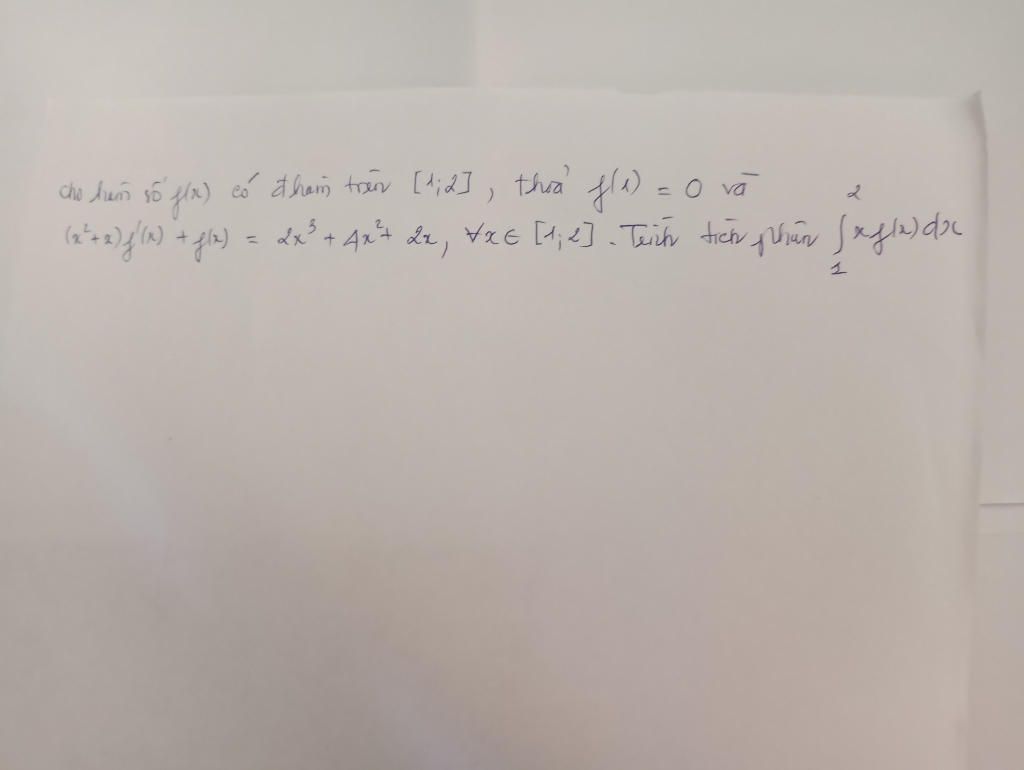 cho hàm số f(x) có đhàm trên [1;2], thoả f(1) = 0 và
(x²+x)f'(x) + f(x) = 2x³ + 4x² + 2x, ∀x ∈ [1;2]. Tính tích phân ∫₁² xf(x)dx